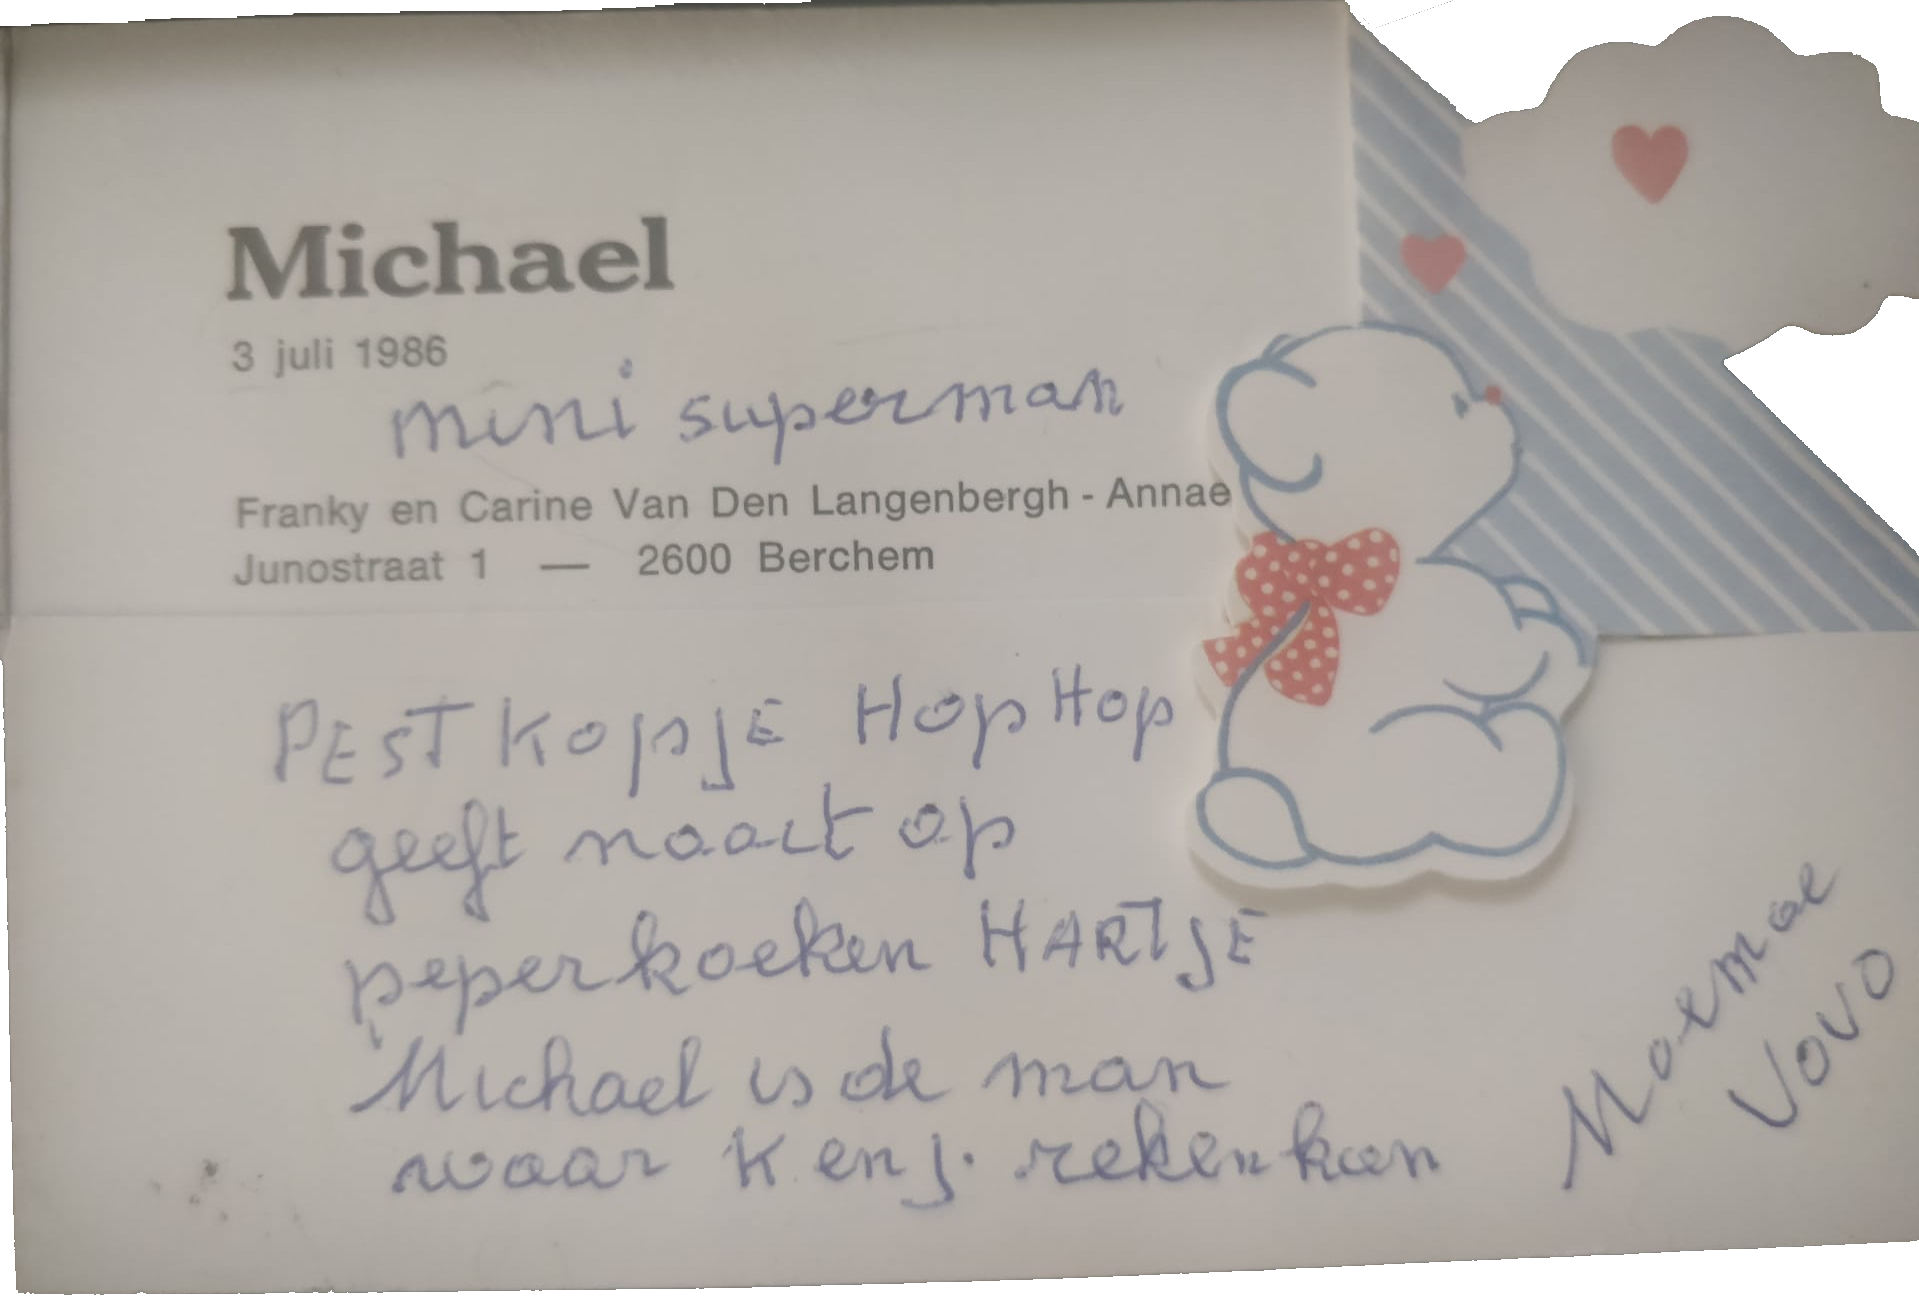 Michael
3 juli 1986
mini superman
Franky en Carine Van Den Langenbergh - Annae
Junostraat 1 — 2600 Berchem
PEST KOPJE HOP HOP
geeft nooit op
peperkoeken HARTJE
Michael is de man
waar K en J. reken kan
Moemoe
VOVO